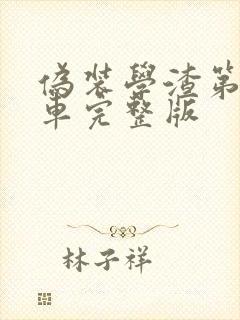 偽装學渣第
車完整版
林子祥